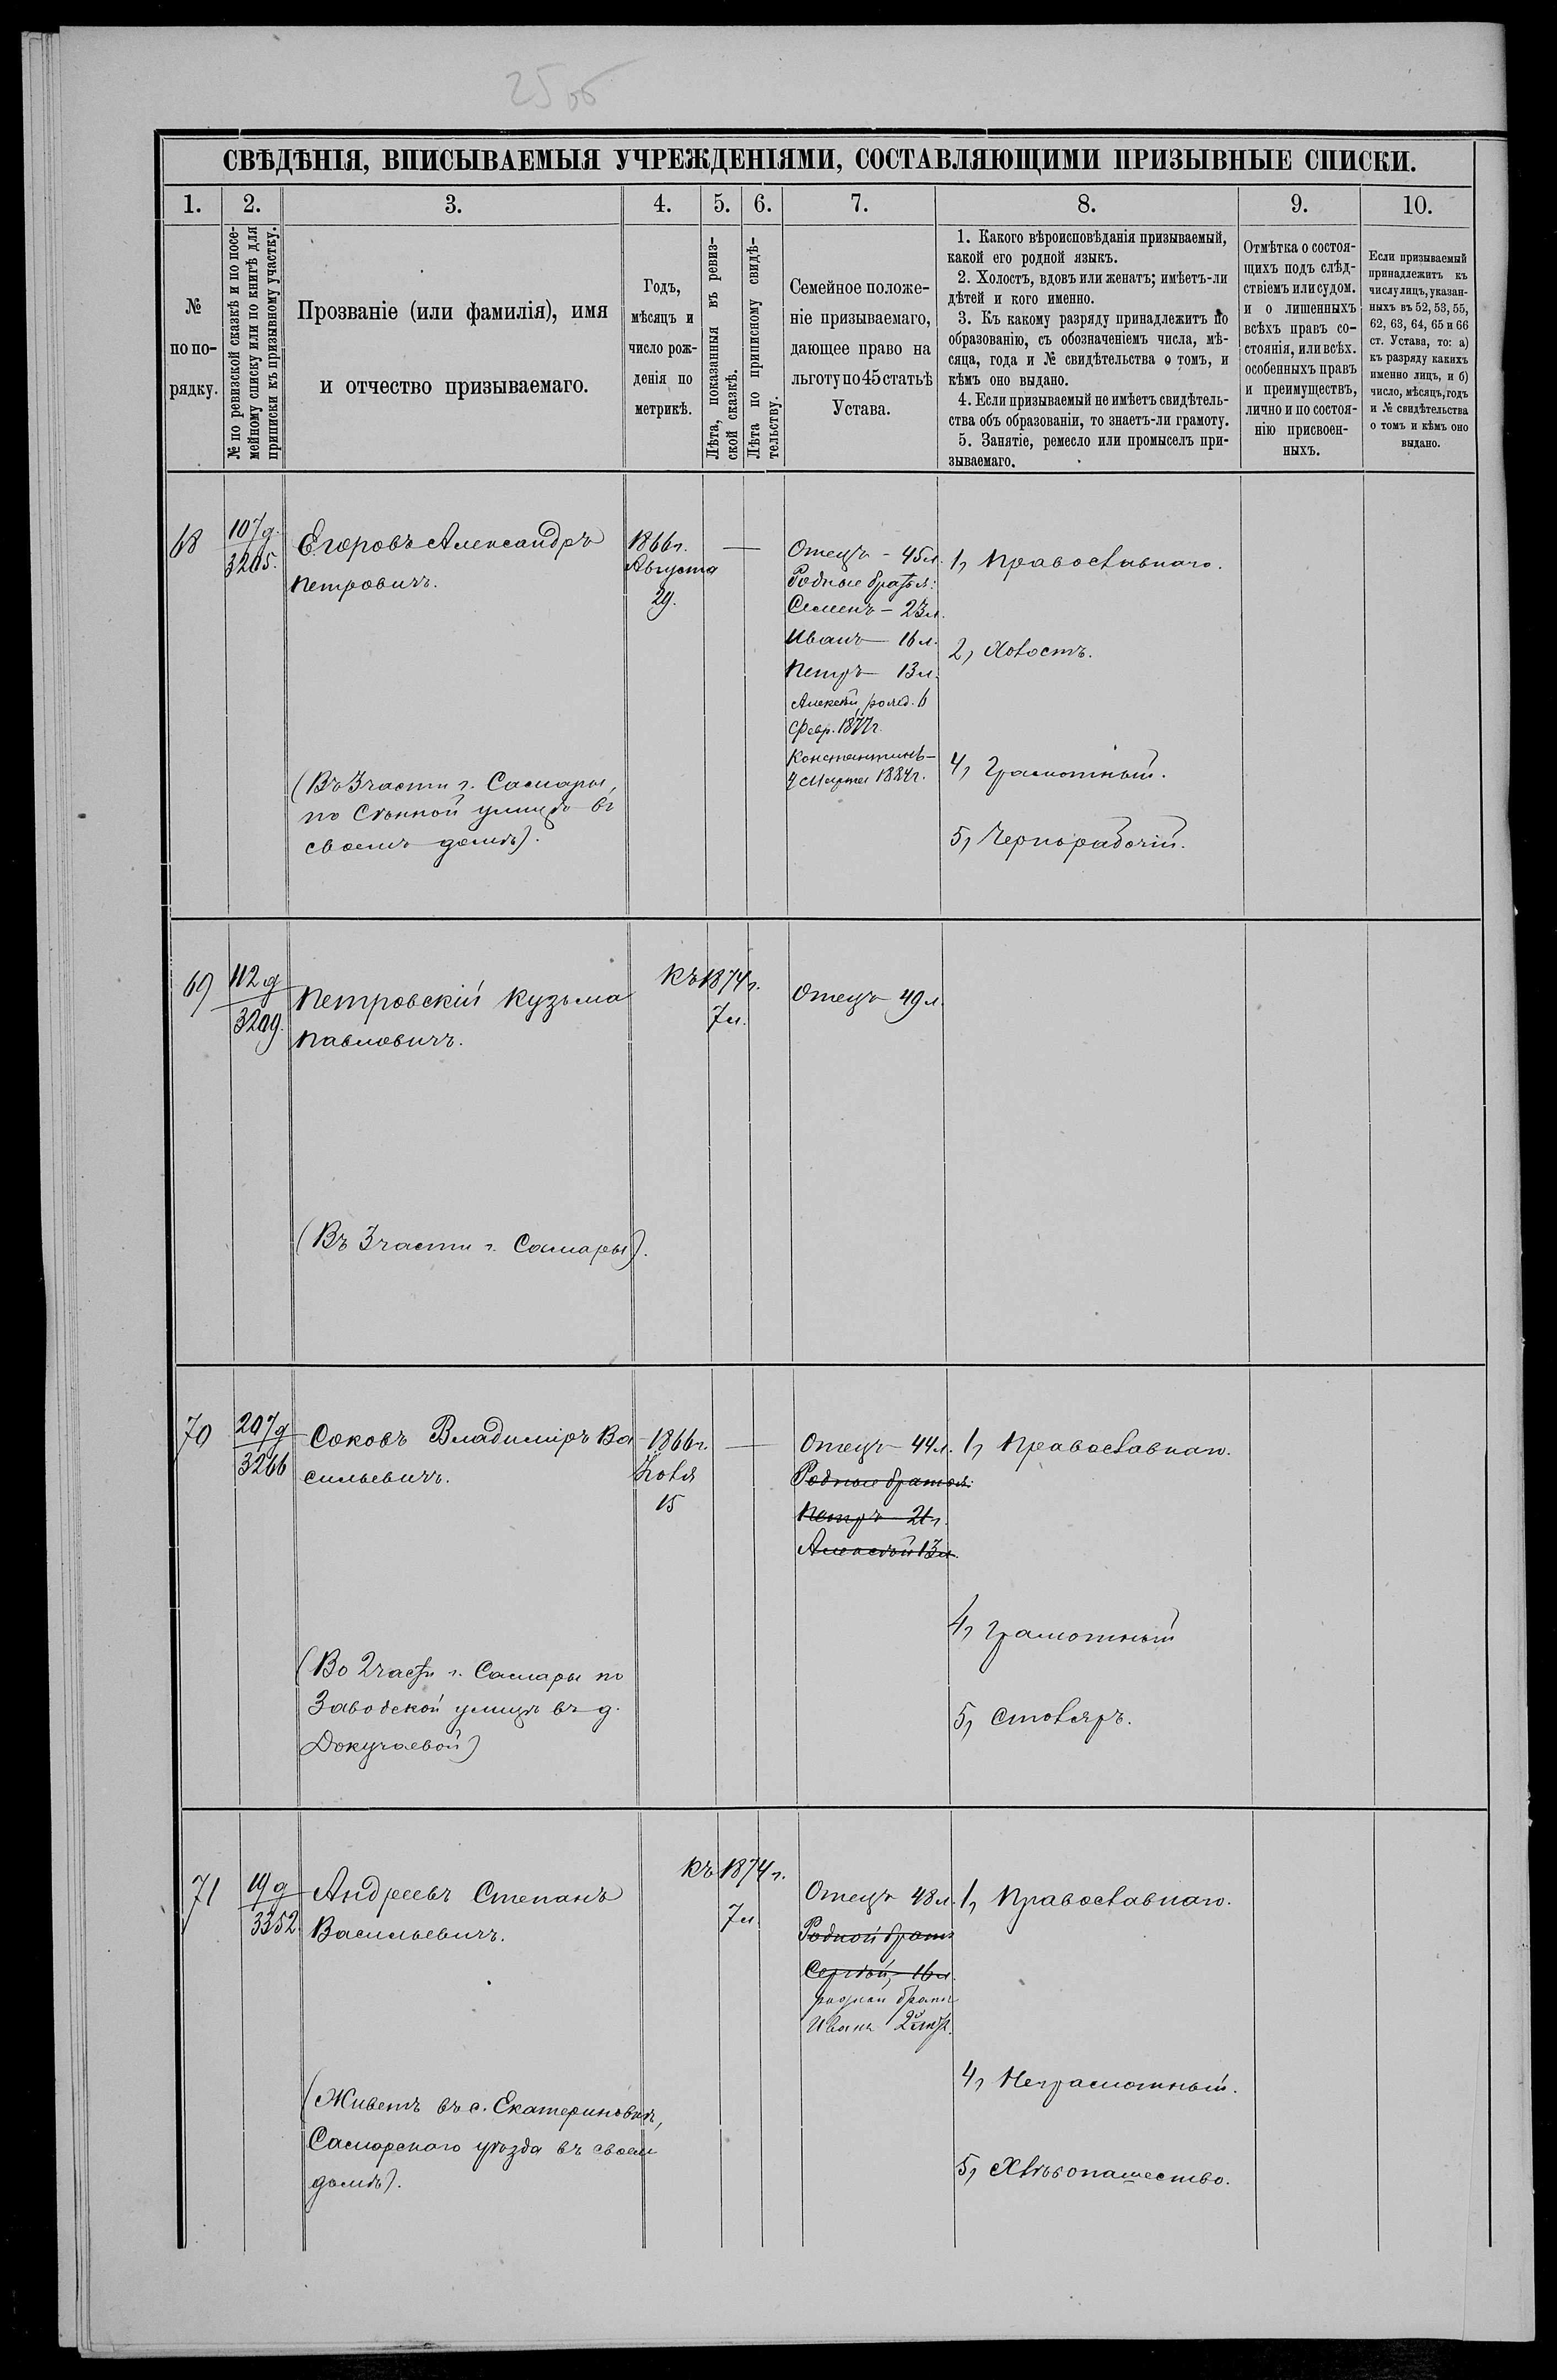 25 об
СВѢДѢНІЯ, ВПИСЫВАЕМЫЯ УЧРЕЖДЕНІЯМИ, СОСТАВЛЯЮЩИМИ ПРИЗЫВНЫЕ СПИСКИ.
1.
2.
3.
4.
5.
6.
7.
8.
9.
10.
№
по по-
рядку.
№ по ревизской сказкѣ и по посе-
мейному списку или по книгѣ для
приписки къ призывному участку.
Прозваніе (или фамилія), имя
и отчество призываемаго.
Годъ,
мѣсяцъ и
число рож-
денія по
метрикѣ.
Лѣта, показанныя въ ревиз-
ской сказкѣ.
Лѣта по приписному свидѣ-
тельству.
Семейное положе-
ніе призываемаго,
дающее право на
льготу по 45 статьѣ
Устава.
1. Какого вѣроисповѣданія призываемый,
какой его родной языкъ.
2. Холостъ, вдовъ или женатъ; имѣетъ-ли
дѣтей и кого именно.
3. Къ какому разряду принадлежитъ по
образованію, съ обозначеніемъ числа, мѣ-
сяца, года и № свидѣтельства о томъ, и
кѣмъ оно выдано.
4. Если призываемый не имѣетъ свидѣтель-
ства объ образованіи, то знаетъ-ли грамоту.
5. Занятіе, ремесло или промыселъ при-
зываемаго.
Отмѣтка о состоя-
щихъ подъ слѣд-
ствіемъ или судом.
и о лишенныхъ
всѣхъ правъ со-
стоянія, или всѣх.
особенныхъ правъ
и преимуществъ,
лично и по состоя-
нію присвоен-
ныхъ.
Если призываемый
принадлежитъ къ
числу лицъ, указан-
ныхъ въ 52, 53, 55,
62, 63, 64, 65 и 66
ст. Устава, то: а)
къ разряду какихъ
именно лицъ, и б)
число, мѣсяцъ, годъ
и № свидѣтельства
о томъ и кѣмъ оно
выдано.
68
107 д.
3205.
Егоровъ Александръ
Петровичъ.
(Въ 3 части г. Самары,
по Сѣнной улицѣ въ
своемъ домѣ).
1866 г.
Августа
29.
—
Отецъ - 45 л.
Родные братья:
Семенъ - 23 л.
Иванъ - 16 л.
Петръ - 13 л.
Алексѣй, рожд. 6
Февр. 1877 г.
Константинъ -
7 Марта 1884 г.
1, Православнаго.
2, Холостъ.
4, Грамотный.
5, Чернорабочій.
69
112 д
3209.
Петровскій Кузьма
Павловичъ.
(Въ 3 части г. Самары).
Къ 1874 г.
7 л.
Отецъ 49 л.
70
207 д
3266
Соковъ Владиміръ Ва-
сильевичъ.
(Во 2 части г. Самары по
Заводской улицѣ въ д.
Докучаевой)
1866 г.
Іюля
15
—
Отецъ - 44 л.
Родные братья:
Петръ - 21 г.
Алексѣй 13 л.
1, Православнаго.
4, Грамотный
5, Столяръ.
71
19 д
3352.
Андреевъ Степанъ
Васильевичъ.
(Живетъ въ с. Екатериновкѣ,
Самарскаго уѣзда въ своемъ
домѣ).
Къ 1874 г.
7 л.
Отецъ 48 л.
Родной братъ
Сергѣй, - 16 л.
родной братъ
Иванъ
1, Православнаго.
4, Неграмотный.
5, Хлѣбопашество.